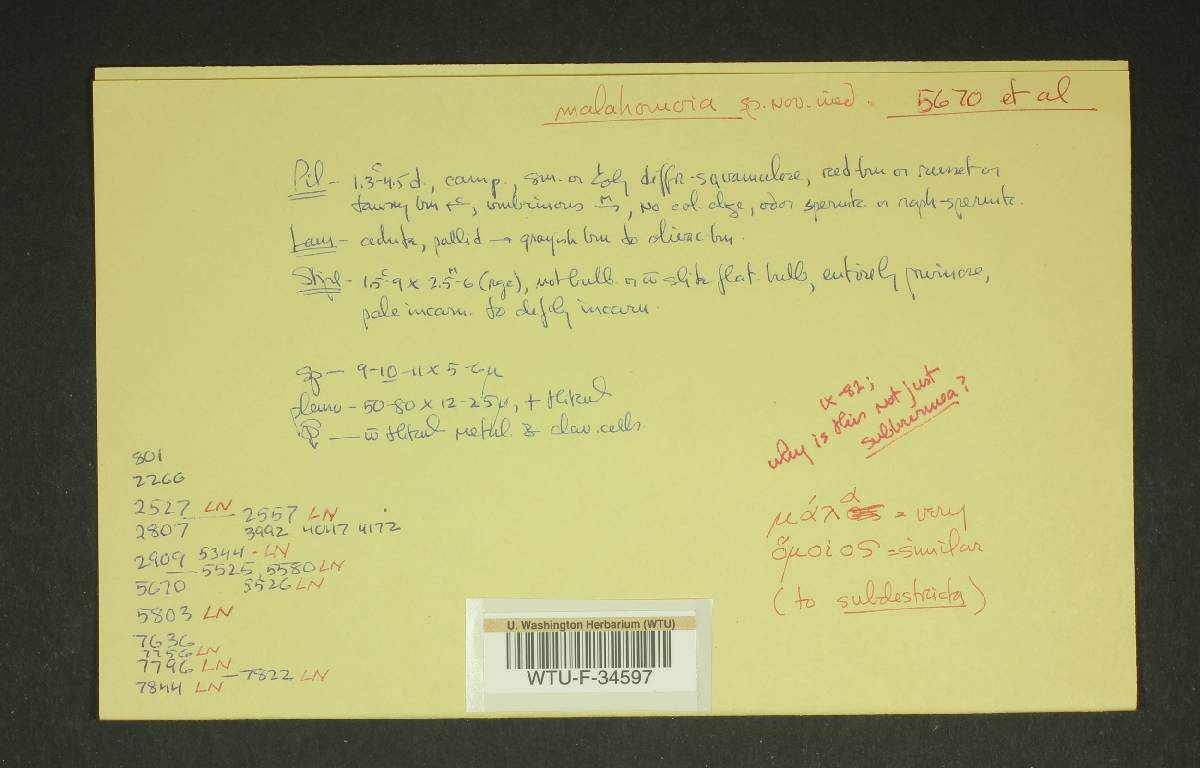 malahomoia sp. nov. ined. 5670 et al
Pil - 1.3-4.5c d., camp., sm. or diffr-squamulose, red brn or russet or
tawny brn, umbrinous, no col. chge, odor spermtc. or raph-spermtc.
Lam - adnate, pallid → grayish brn to olivac brn.
Stipe - 1.5c-9 x 2.5M-6 (age), not bulb. or w̄ slite flat. bulb, entirely pruinose,
pale incarn. to incarn.
sp - 9-10-11 x 5-6μ
pleuro - 50-80 x 12-25μ, + thkwl
w̄ thkwl metul. & clav. cells.
IX-82;
why is this not just
subbrunnea?
801
2266
2527 LN - 2557 LN
2807 3992 4047 4172
2909 5344 - LN
5525, 5580 LN
5670 5526 LN
5803 LN
7636
7756 LN
7796 LN - 7822 LN
7844 LN
μάλα = very
ὅμοιος = similar
(to subdestricta)
U. Washington Herbarium (WTU)
WTU-F-34597